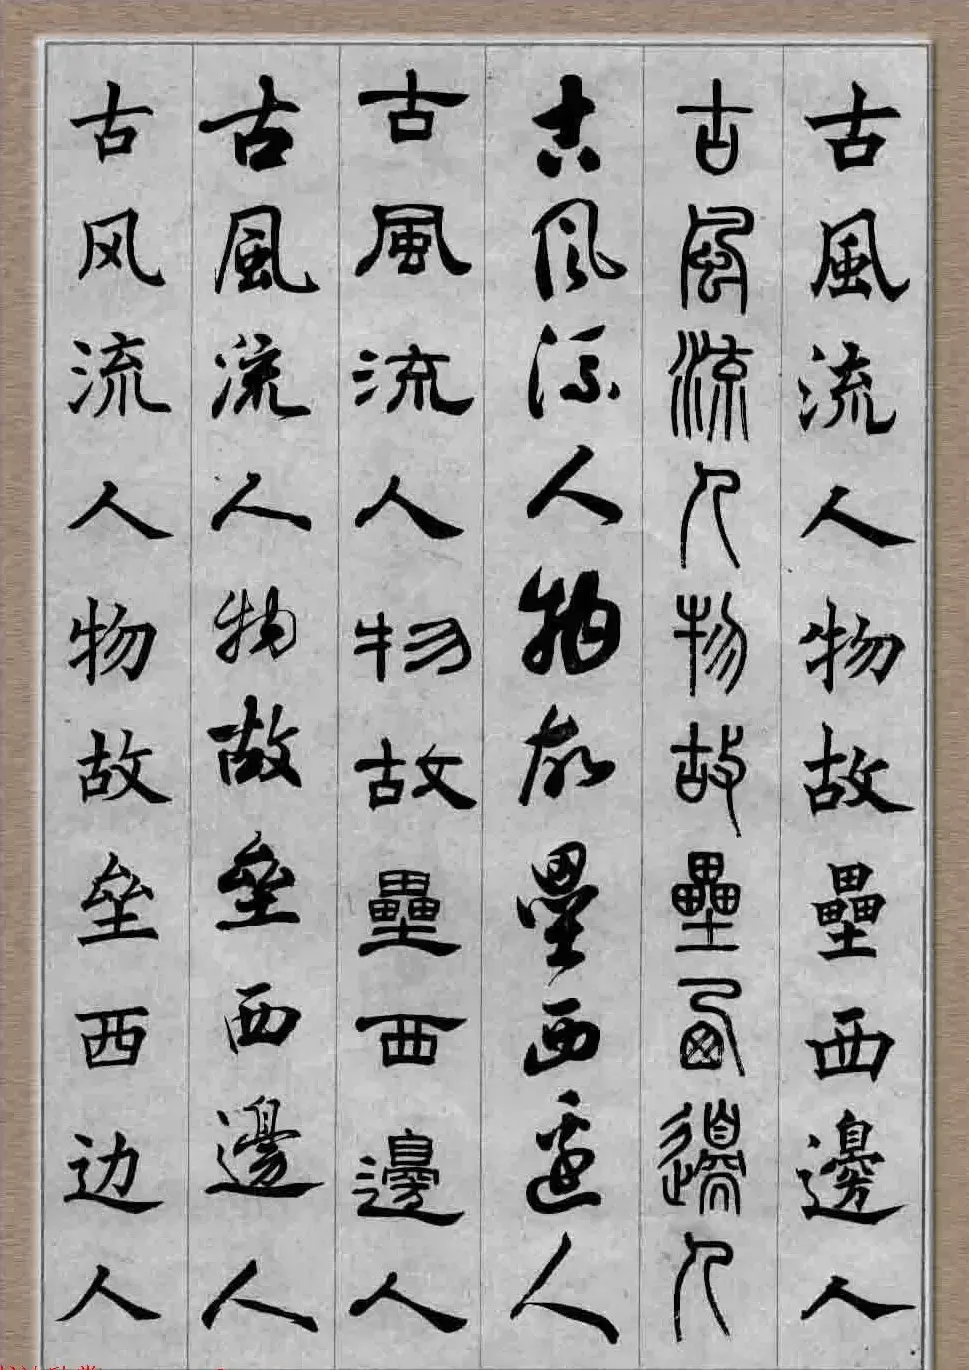 古風流人物故壘西邊人
古風流人物故壘西邊人
古風流人物故壘西邊人
古風流人物故壘西邊人
古風流人物故垒西邊人
古风流人物故垒西边人